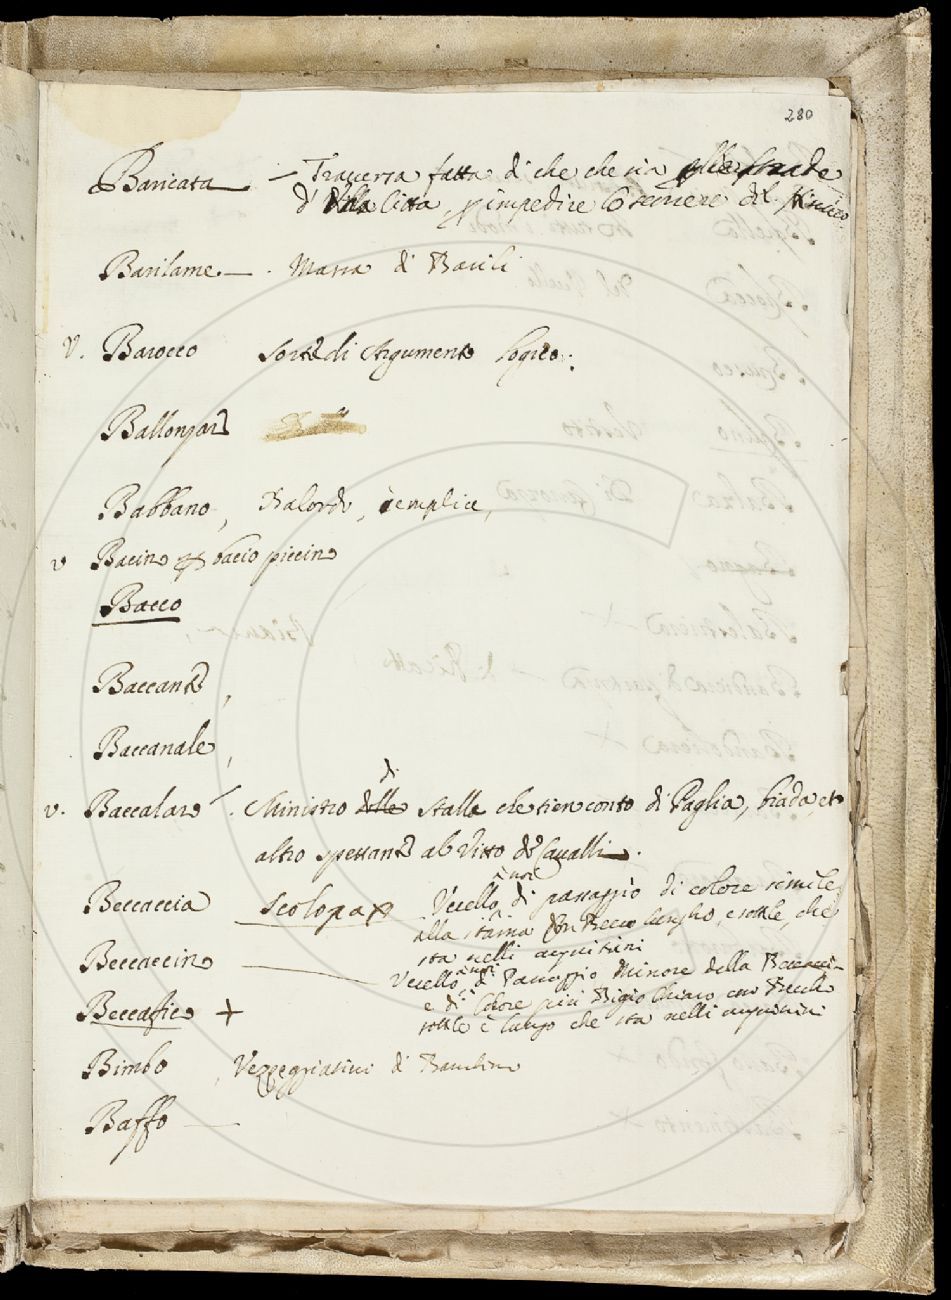 280
Baricata — Traversa fatta di che che sia
d' Città, p impedire l'
Barilame — . Massa di Barili
V. Barocco Sorte di Argumento logico.
Ballonzar
Babbano, Balordo, semplice,
v Bacino bacio piccino
Bacco
Baccante,
Baccanale,
v. Baccalare. Ministro di stalla che tien conto di Paglia, biada, et
altro spettante al Vitto de Cavalli.
Beccaccia Scolopax Vccello di passaggio di colore simile
alla starna becco lungho, e sottile, che
sta nelli acquitrini
Beccaccino — Vccello di Passaggio Minore della
e di Colore più Bigio Chiaro con Becco
sottile e lungo che sta nelli acquitrini
Beccafico +
Bimbo, Vezzegiativo di Bambino
Baffo —